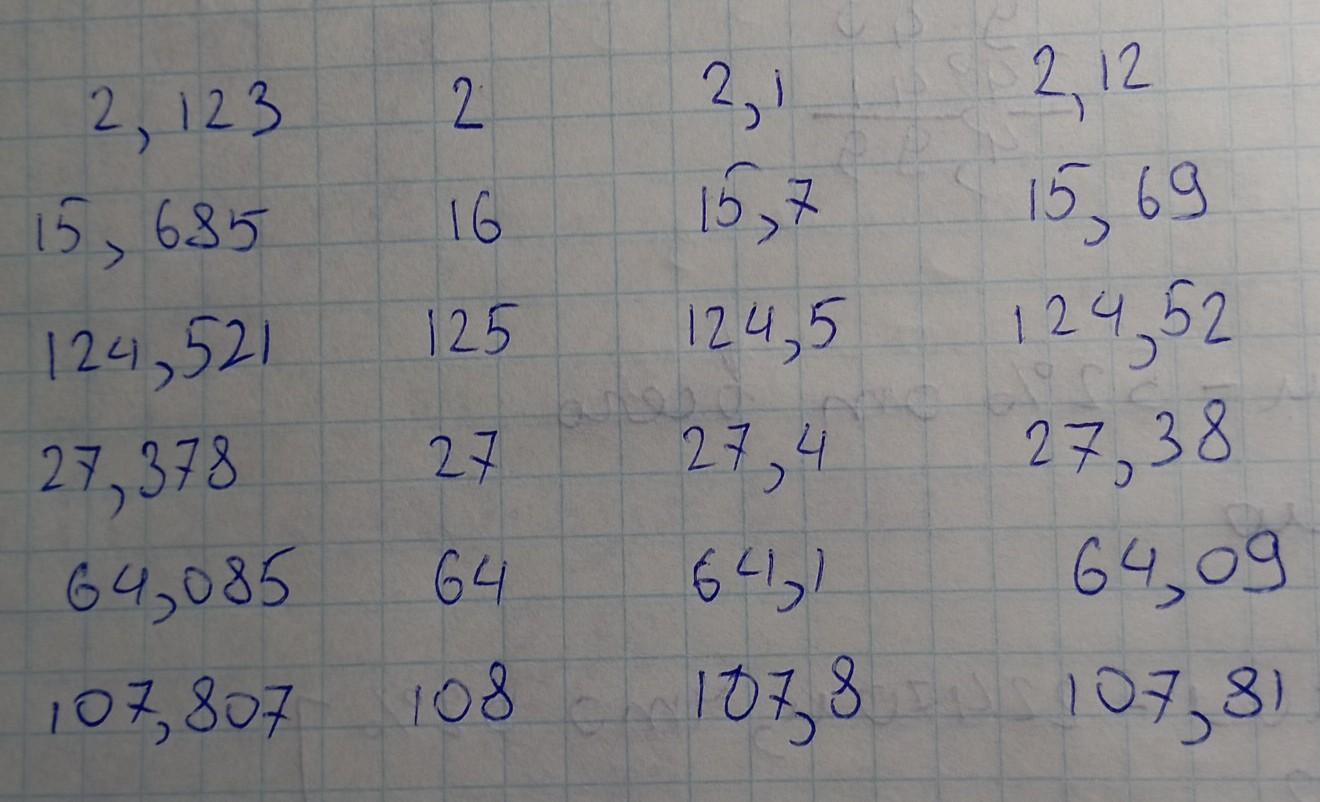 2,123 2 2,1 2,12
15,685 16 15,7 15,69
124,521 125 124,5 124,52
27,378 27 27,4 27,38
64,085 64 64,1 64,09
107,807 108 107,8 107,81